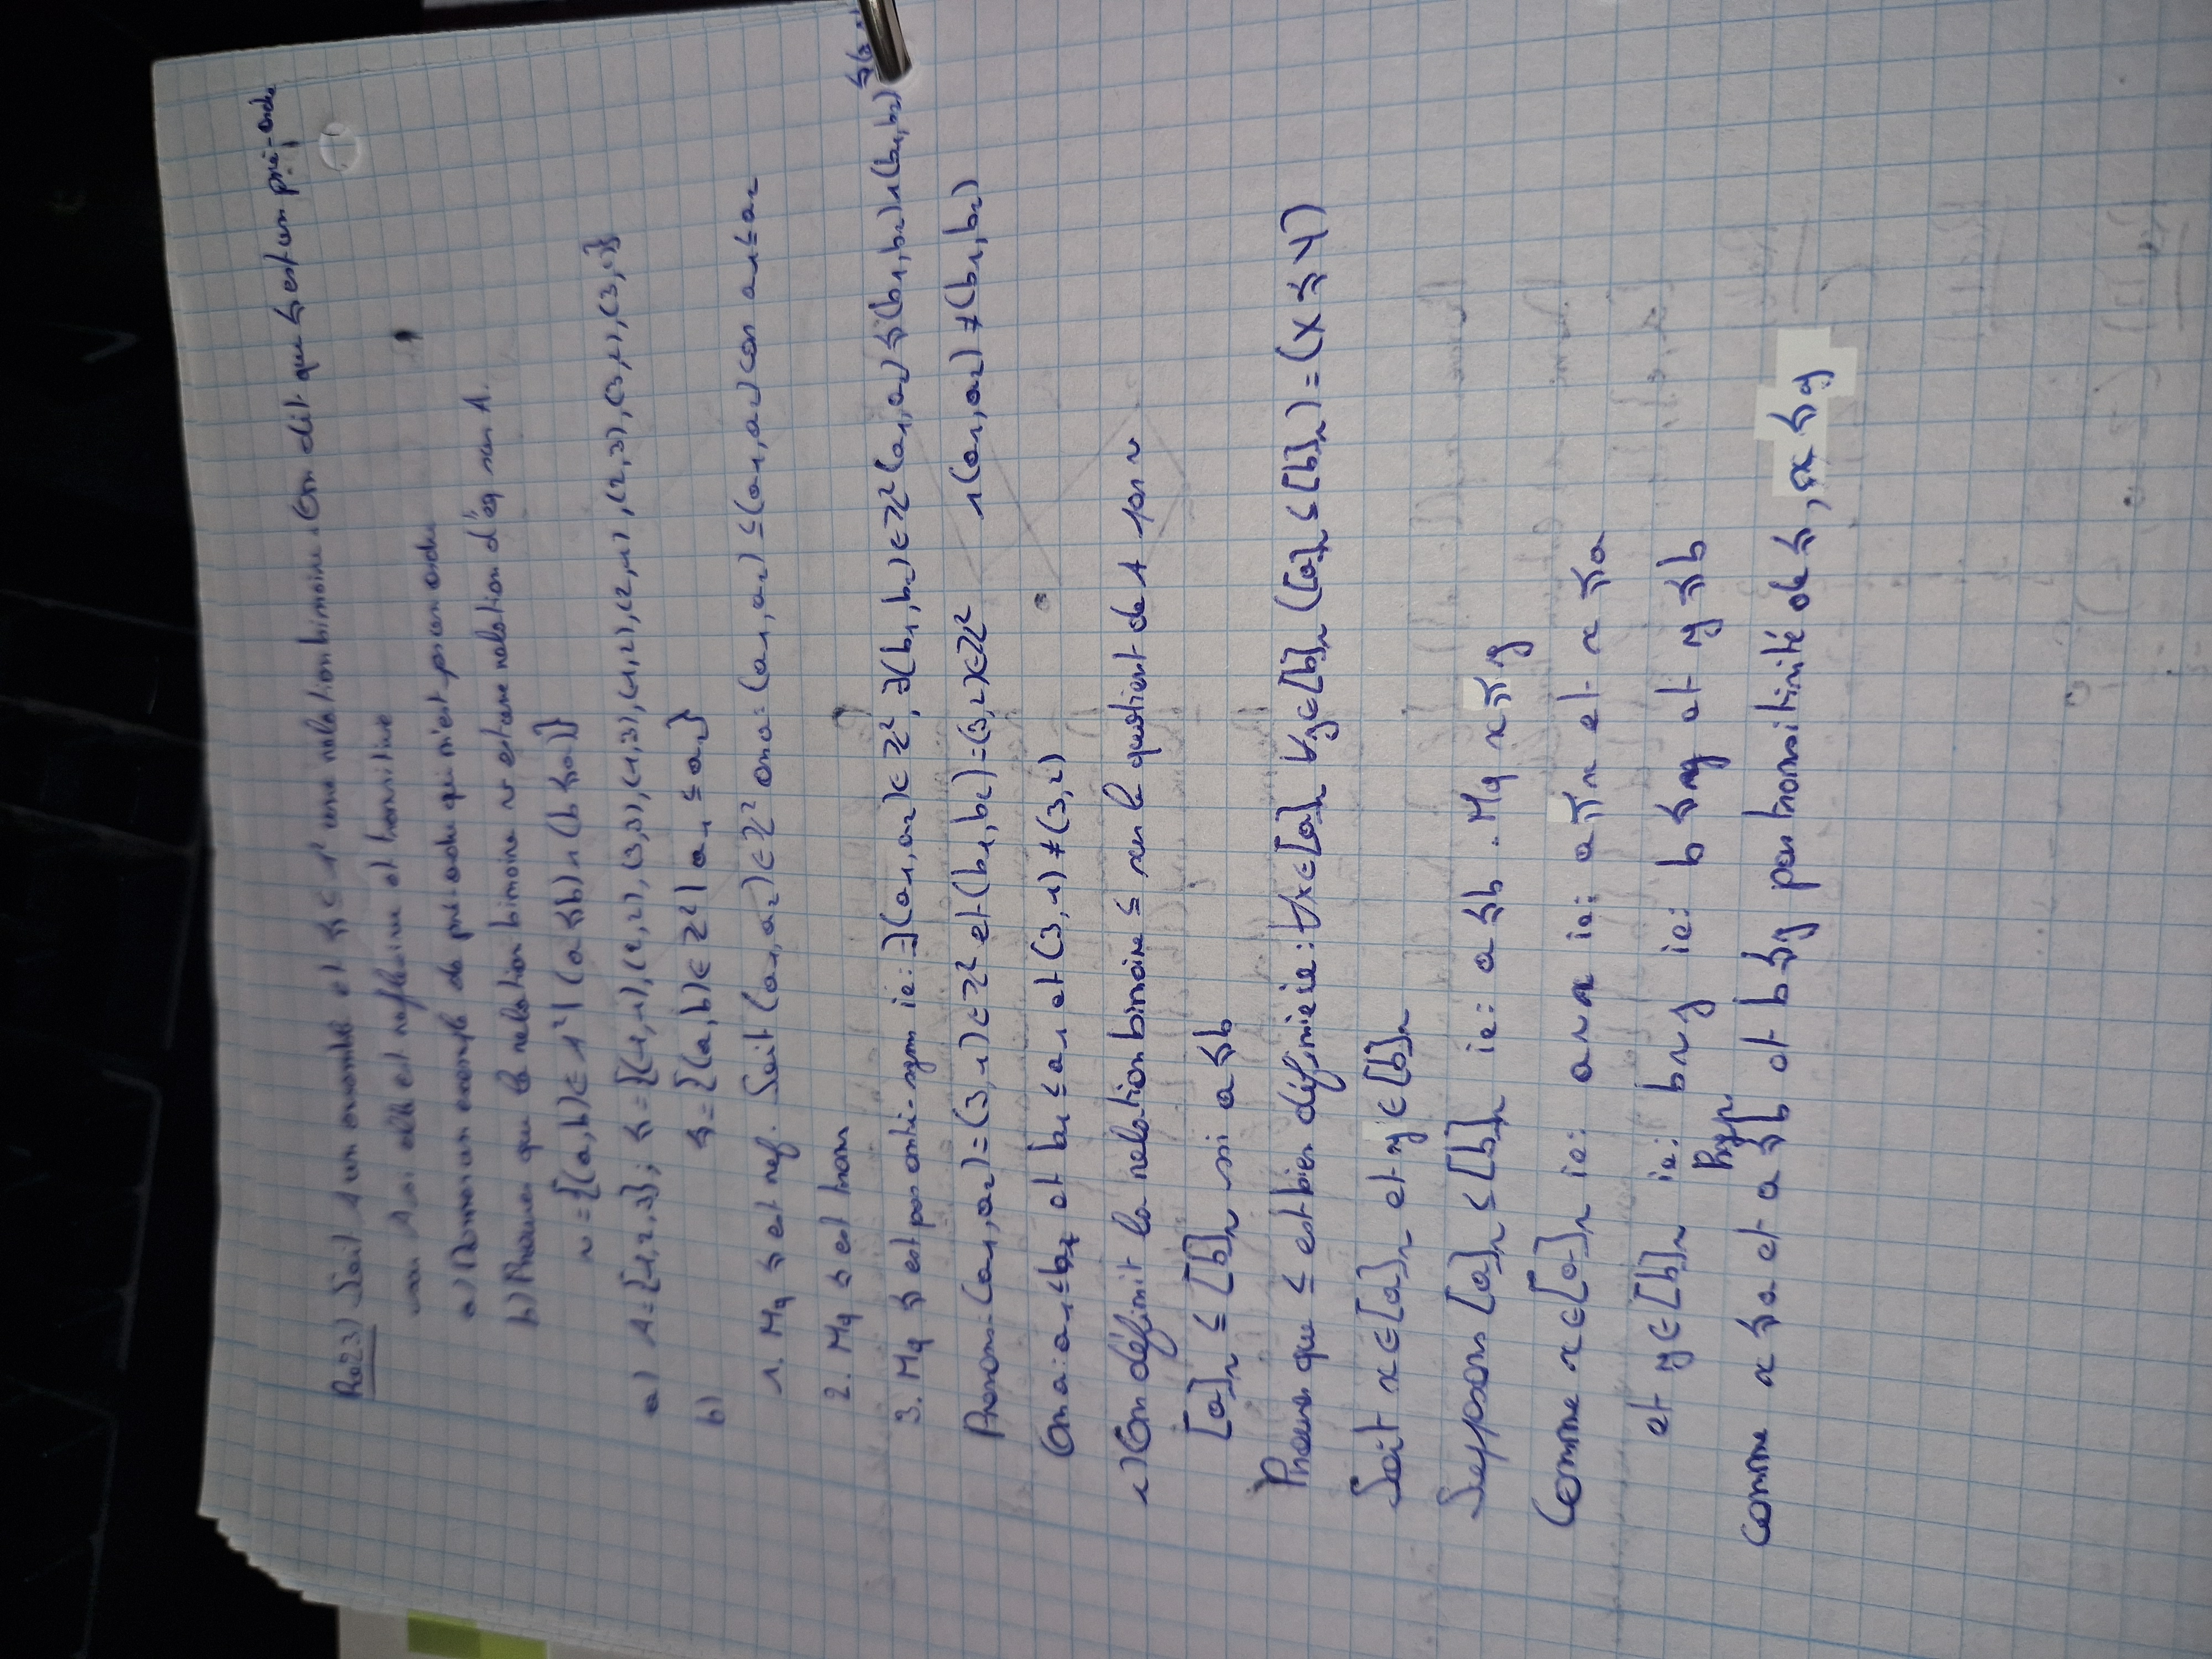 Re23) Soit A un ensemble et ≼ ⊆ A² une relation binaire. On dit que ≼ est un pré-ordre
sur A si elle est reflexive et transitive
a) Donner un exemple de pré-ordre qui n'est pas un ordre
b) Prouver que la relation binaire ~ est une relation d'éq sur A.
~ = {(a,b) ∈ A² | (a ≼ b) ∧ (b ≼ a)}
a) A = {1,2,3}; ≼ = {(1,1), (2,2), (3,3), (1,3), (1,2), (2,1), (2,3), (3,1), (3,2)}
b) ≼ = {(a,b) ∈ ℤ² | a₁ ≤ a₂}
1. Mq ≼ est ref. Soit (a₁,a₂) ∈ ℤ² on a: (a₁,a₂) ≤ (a₁,a₂) car a₁ ≤ a₂
2. Mq ≼ est trans
3. Mq ≼ est pas anti-sym ie: ∃(a₁,a₂) ∈ ℤ², ∃(b₁,b₂) ∈ ℤ² (a₁,a₂) ≼ (b₁,b₂) ∧ (b₁,b₂) ≼
∧ (a₁,a₂) ≠ (b₁,b₂)
Prenons: (a₁,a₂) = (3,1) ∈ ℤ² et (b₁,b₂) = (3,2) ∈ ℤ²
On a: a₁ ≤ b₁ et b₁ ≤ a₁ et (3,1) ≠ (3,2)
c) On définit la relation binaire ≤ sur le quotient de A par ~
[a]~ ≤ [b]~ ssi a ≼ b
Prouver que ≤ est bien définie ie: ∀x ∈ [a]~ ∀y ∈ [b]~ ([a]~ ≤ [b]~) = (X ≼ Y)
Soit x ∈ [a]~ et y ∈ [b]~
Supposons [a]~ ≤ [b]~ ie: a ≼ b. Mq x ≼ y
Comme x ∈ [a]~ ie: a ~ x ie: a ≼ x et x ≼ a
et y ∈ [b]~ ie: b ~ y ie: b ≼ y et y ≼ b
Hyp.
comme x ≼ a et a ≼ b et b ≼ y par transitivité de ≼, x ≼ y